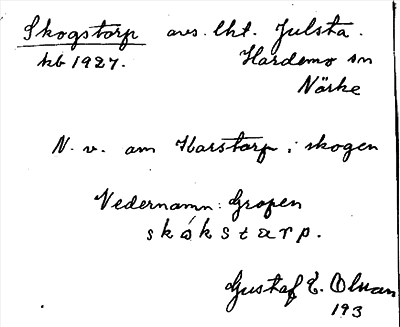 Skogstorp avs. lht. Julsta.
hb 1927. Hardemo sn
Närke
N. v. om Harstorp i skogen
Vedernamn: Gropen
skókstarp.
Gustaf E. Olman
193